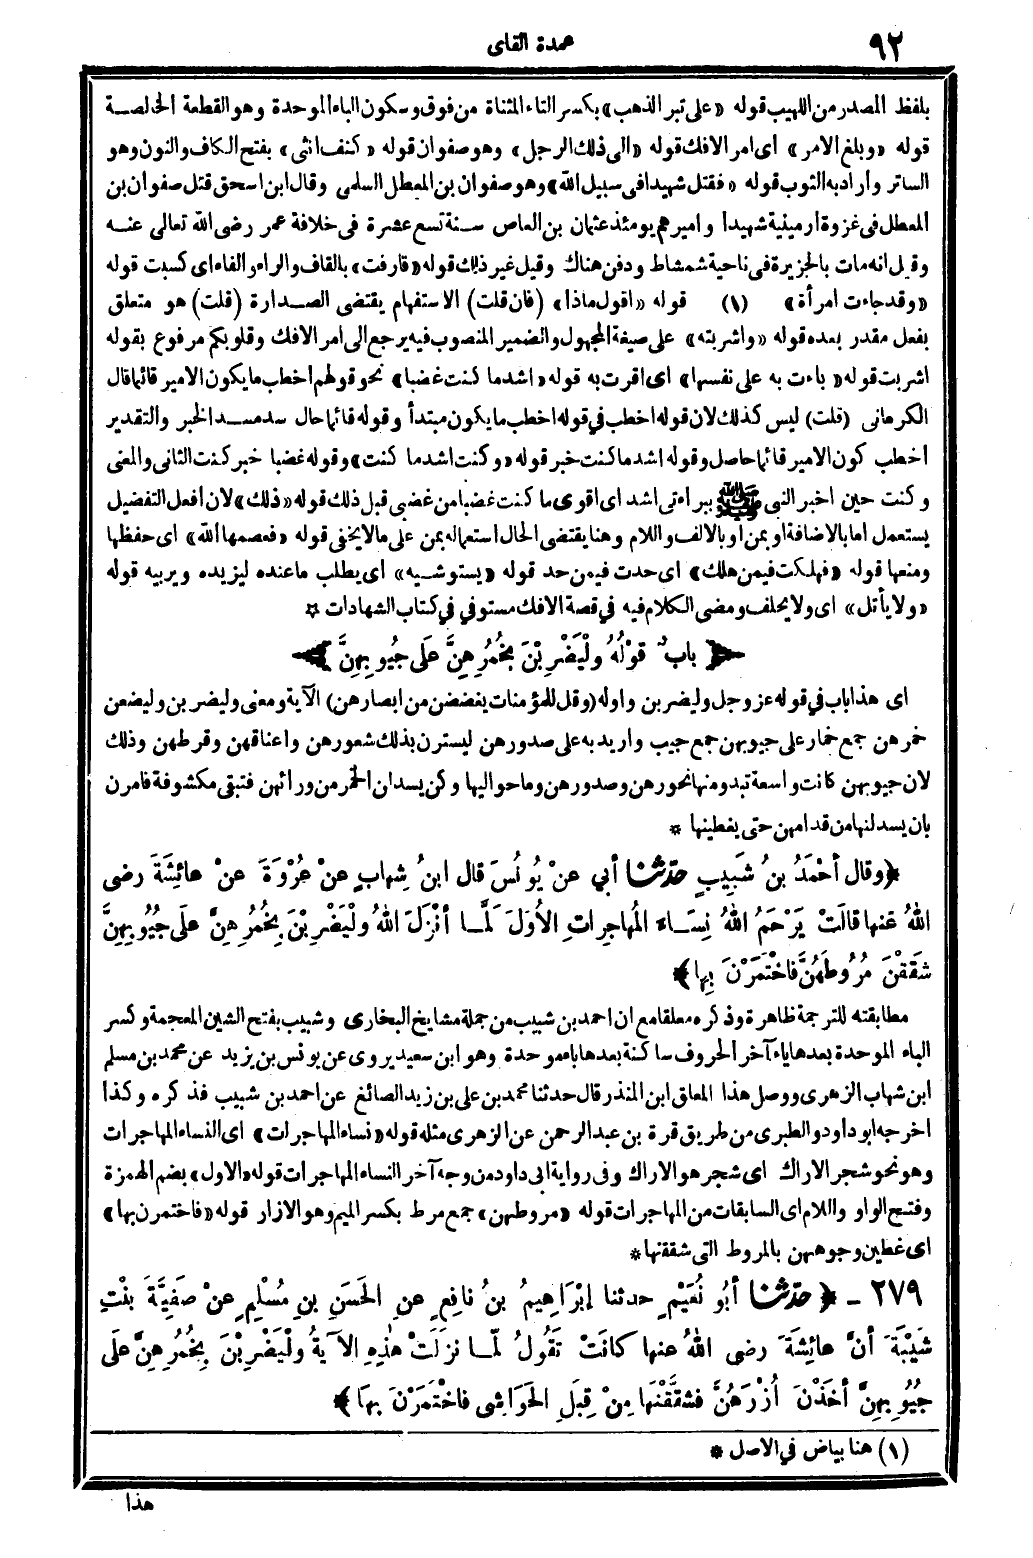 ٩٢
عمدة القاى
بلفظ المصدر من اللهيب قوله «على تبر الذهب» بكسر التاء المثناة من فوق وسكون الباء الموحدة وهو القطعة الخالصة
قوله «وبلغ الامر» اى امر الافك قوله «الى ذلك الرجل» وهو صفوان قوله «كنف انثى» بفتح الكاف والنون وهو
الساتر وأراد به الثوب قوله «فقتل شهيدا فى سبيل الله» وهو صفوان بن المعطل السلمى وقال ابن اسحق قتل صفوان بن
المعطل فى غزوة أرمينية شهيدا واميرهم يومئذ عثمان بن العاص سنة تسع عشرة فى خلافة عمر رضى الله تعالى عنه
وقيل انه مات بالجزيرة فى ناحية شمشاط ودفن هناك وقيل غير ذلك قوله «قارفت» بالقاف والراء والفاء اى كسبت قوله
«وقد جاءت امرأة» (١) قوله «اقول ماذا» (فان قلت) الاستفهام يقتضى الصدارة (قلت) هو متعلق
بفعل مقدر بعده قوله «واشربته» على صيغة المجهول والضمير المنصوب فيه يرجع الى امر الافك وقلوبكم مرفوع بقوله
اشربت قوله «باءت به على نفسها» اى اقرت به قوله «اشد ما كنت غضبا» نحو قولهم اخطب ما يكون الامير قائما قال
الكرمانى (قلت) ليس كذلك لان قوله اخطب في قوله اخطب ما يكون مبتدأ وقوله قائما حال سد مسد الخبر والتقدير
اخطب كون الامير قائما حاصل وقوله اشد ما كنت خبر قوله «وكنت اشد ما كنت» وقوله غضبا خبر كنت الثانى والمعنى
وكنت حين اخبر النبى ﷺ ببراءتى اشد اى اقوى ما كنت غضبا من غضبى قبل ذلك قوله «ذلك» لان أفعل التفضيل
يستعمل اما بالاضافة أو بمن أو بالالف واللام وهنا يقتضى الحال استعماله بمن على ما لا يخفى قوله «فعصمها الله» اى حفظها
ومنعها قوله «فهلكت فيمن هلك» اى حدت فيمن حد قوله «يستوشيه» اى يطلب ما عنده ليزيده ويربيه قوله
«ولا يأتل» اى ولا يحلف ومضى الكلام فيه في قصة الافك مستوفي في كتاب الشهادات ☆
﴿ باب قَوْلُهُ ولْيَضْرِبْنَ بِخُمُرِهِنَّ عَلَى جُيُوبِهِنَّ ﴾
اى هذا باب في قوله عز وجل وليضربن واوله (وقل للمؤمنات يغضضن من ابصارهن) الآية ومعنى وليضربن وليضعن
خمرهن جمع خمار على جيوبهن جمع جيب واريد به على صدورهن ليسترن بذلك شعورهن واعناقهن وقرطهن وذلك
لان جيوبهن كانت واسعة تبدو منها نحورهن وصدورهن وما حواليها وكن يسدلن الخمر من ورائهن فتبقى مكشوفة فامرن
بان يسدلنها من قدامهن حتى يغطينها *
﴿ وقال أَحْمَدُ بنُ شَبِيبٍ حدّثنا أبي عنْ يُونُسَ قال ابنُ شِهابٍ عنْ عُرْوَةَ عنْ عائِشَةَ رضى
اللهُ عنها قالَتْ يَرْحَمُ اللهُ نِسَاءَ المُهاجِراتِ الأُوَلَ لَمَّا أنْزَلَ اللهُ ولْيَضْرِبْنَ بِخُمُرِهِنَّ علَى جُيُوبِهِنَّ
شَقَقْنَ مُرُوطَهُنَّ فاخْتَمَرْنَ بِها ﴾
مطابقته للترجمة ظاهرة وذكره معلقا مع ان احمد بن شبيب من جملة مشايخ البخارى وشبيب بفتح الشين المعجمة وكسر
الباء الموحدة بعدها ياء آخر الحروف ساكنة بعدها باء موحدة وهو ابن سعيد يروى عن يونس بن يزيد عن محمد بن مسلم
ابن شهاب الزهرى ووصل هذا المعلق ابن المنذر قال حدثنا محمد بن على بن زيد الصائغ عن احمد بن شبيب فذكره وكذا
اخرجه ابو داود والطبرى من طريق قرة بن عبد الرحمن عن الزهرى مثله قوله «نساء المهاجرات» اى النساء المهاجرات
وهو نحو شجر الاراك اى شجر هو الاراك وفى رواية ابى داود من وجه آخر النساء المهاجرات قوله «الاول» بضم الهمزة
وفتح الواو واللام اى السابقات من المهاجرات قوله «مروطهن» جمع مرط بكسر الميم وهو الازار قوله «فاختمرن بها»
اى غطين وجوههن بالمروط التى شققنها *
٢٧٩ ـ ﴿ حدّثنا أبُو نُعَيْمٍ حدثنا إبْرَاهِيمُ بنُ نافِعٍ عنِ الحَسَنِ بنِ مُسْلِمٍ عنْ صَفِيَّةَ بنْتِ
شَيْبَةَ أنَّ عائِشَةَ رضى اللهُ عنها كانَتْ تَقُولُ لَمَّا نزَلَتْ هٰذِهِ الآيةُ ولْيَضْرِبْنَ بِخُمُرِهِنَّ علَى
جُيُوبِهِنَّ أخَذْنَ أُزْرَهُنَّ فشَقَّقْنَها مِنْ قِبَلِ الحَوَاشِى فاخْتَمَرْنَ بِهَا ﴾
(١) هنا بياض في الاصل *
هذا